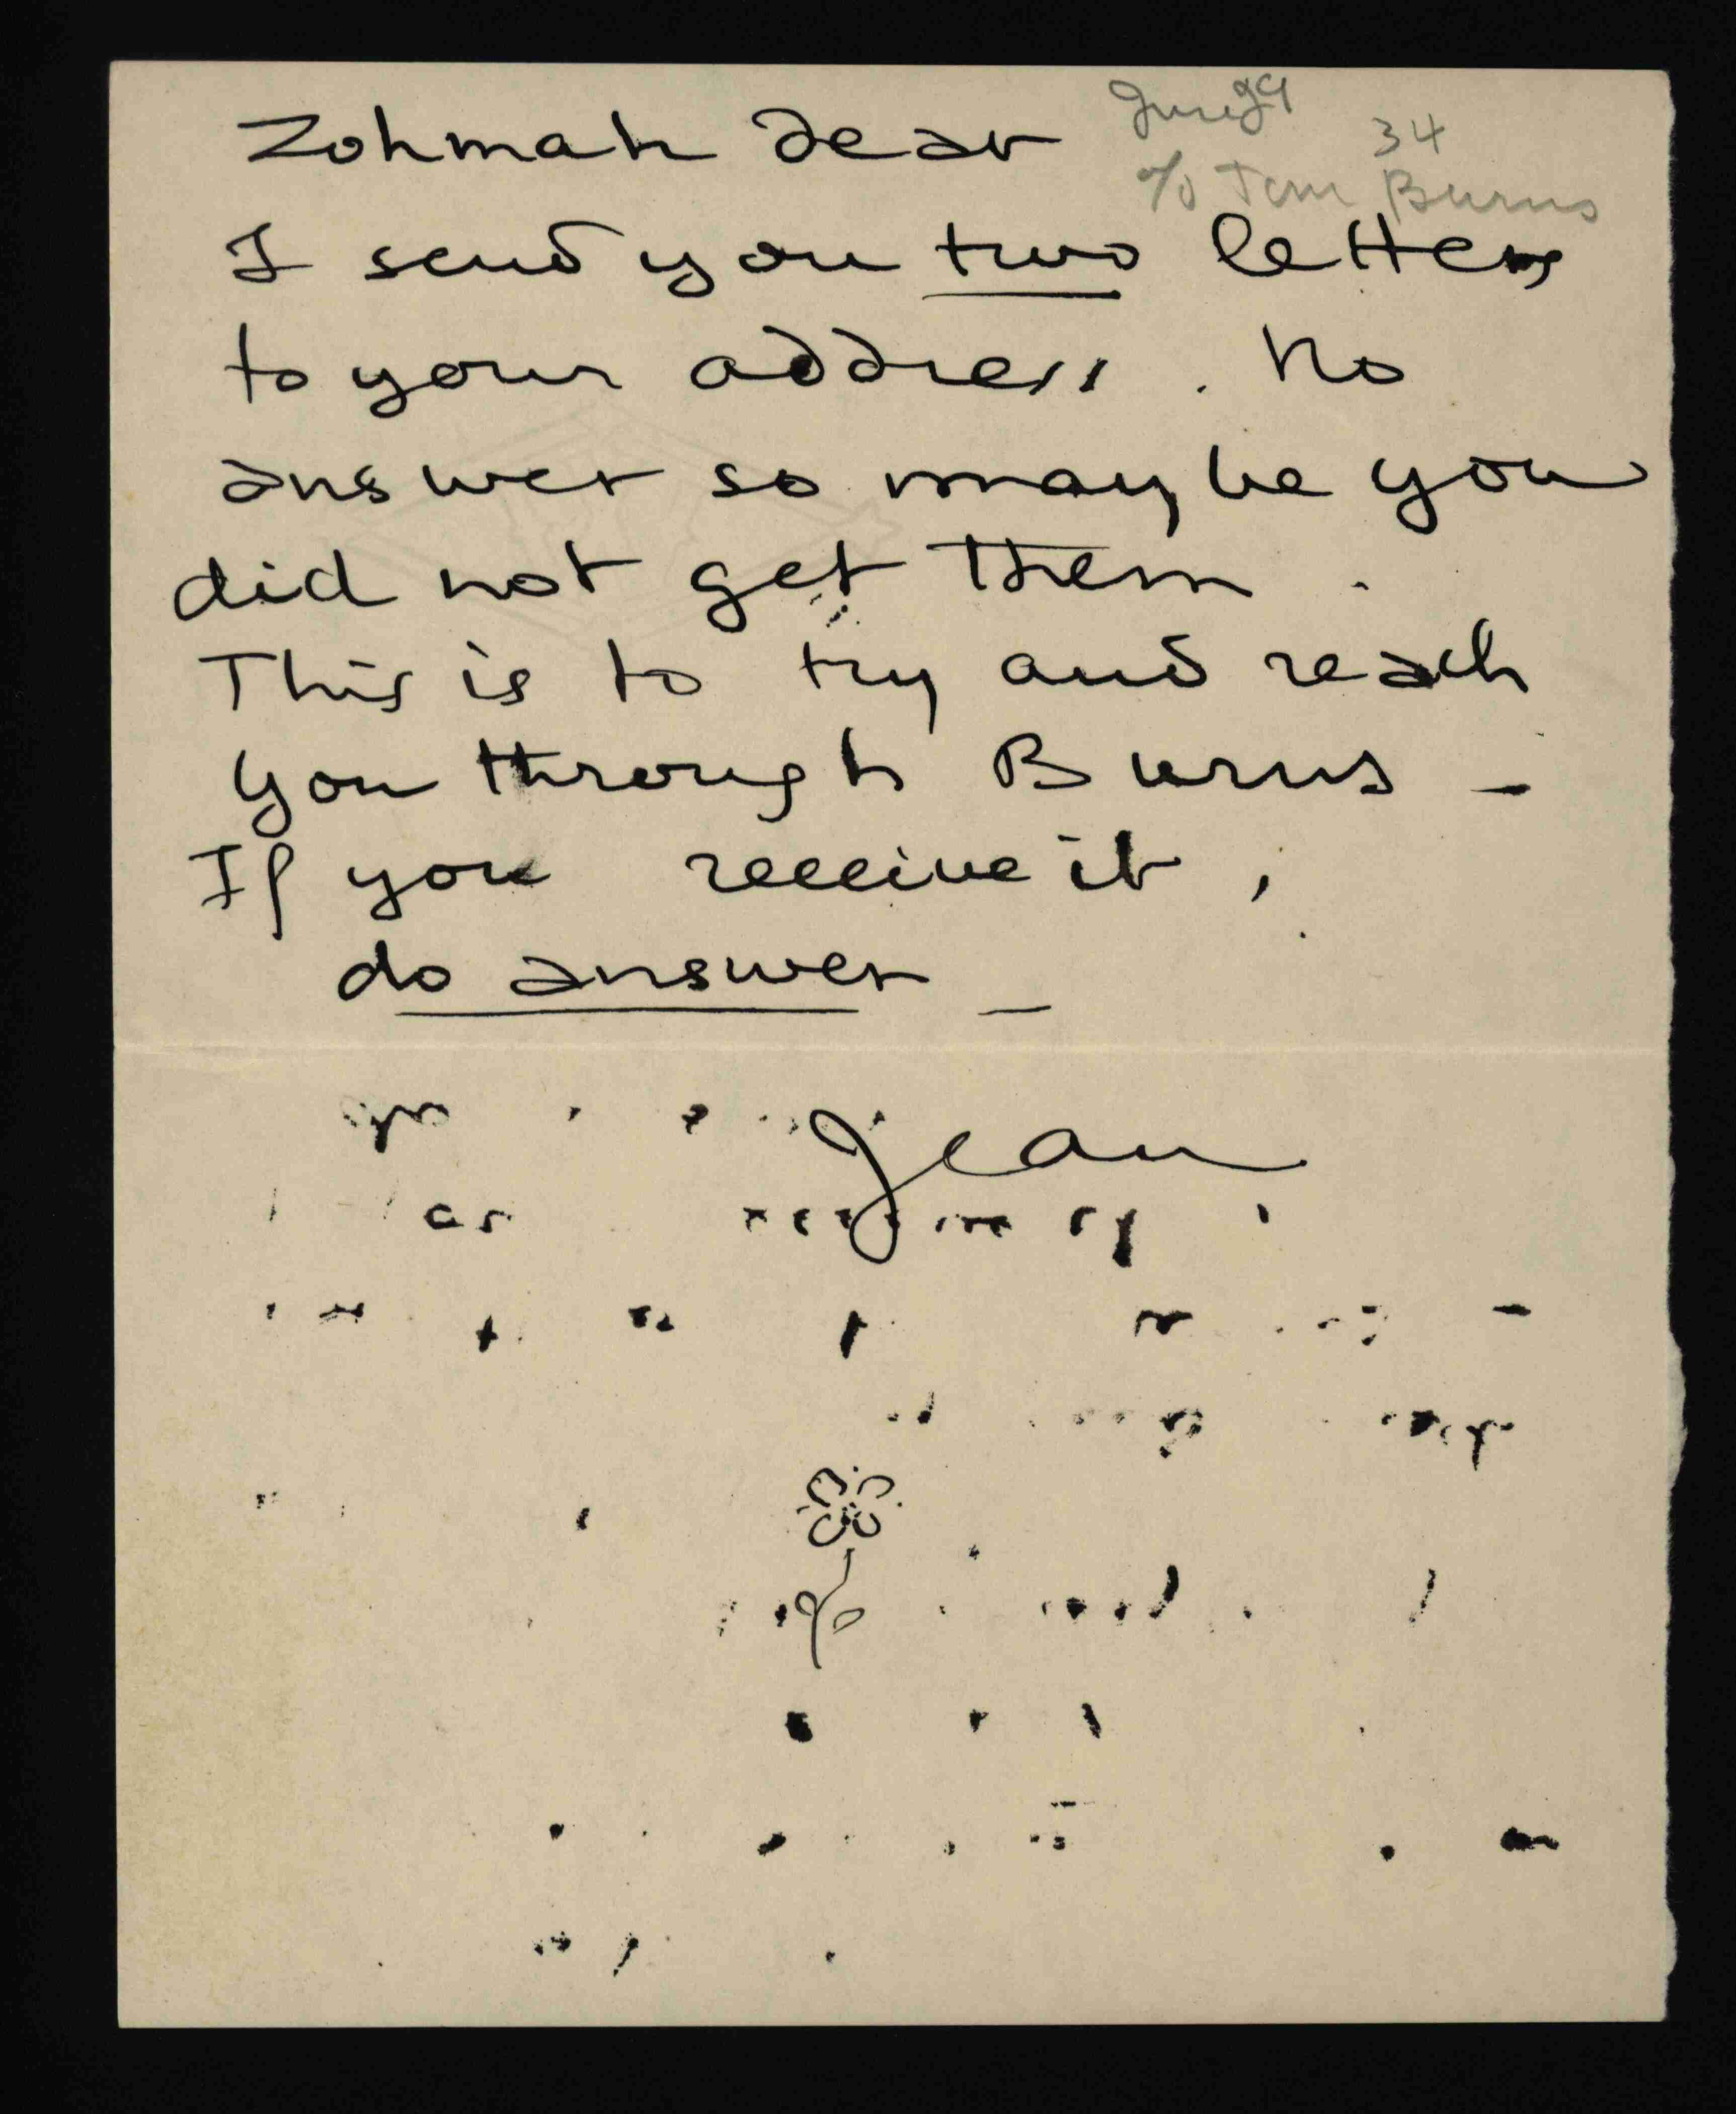 Zohmah dear
June 29
34
c/o Tom Burns
I send you two letters
to your address. No
answer so maybe you
did not get them.
This is to try and reach
you through Burns –
If you receive it,
do answer –
Jean